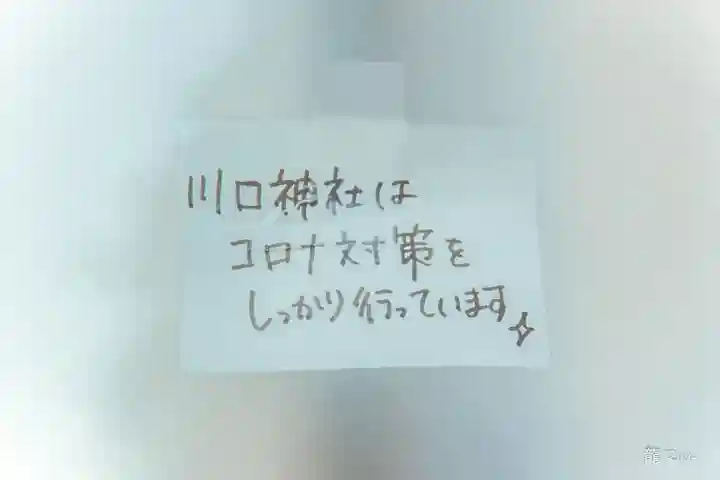 川口神社は
コロナ対策を
しっかり行っています